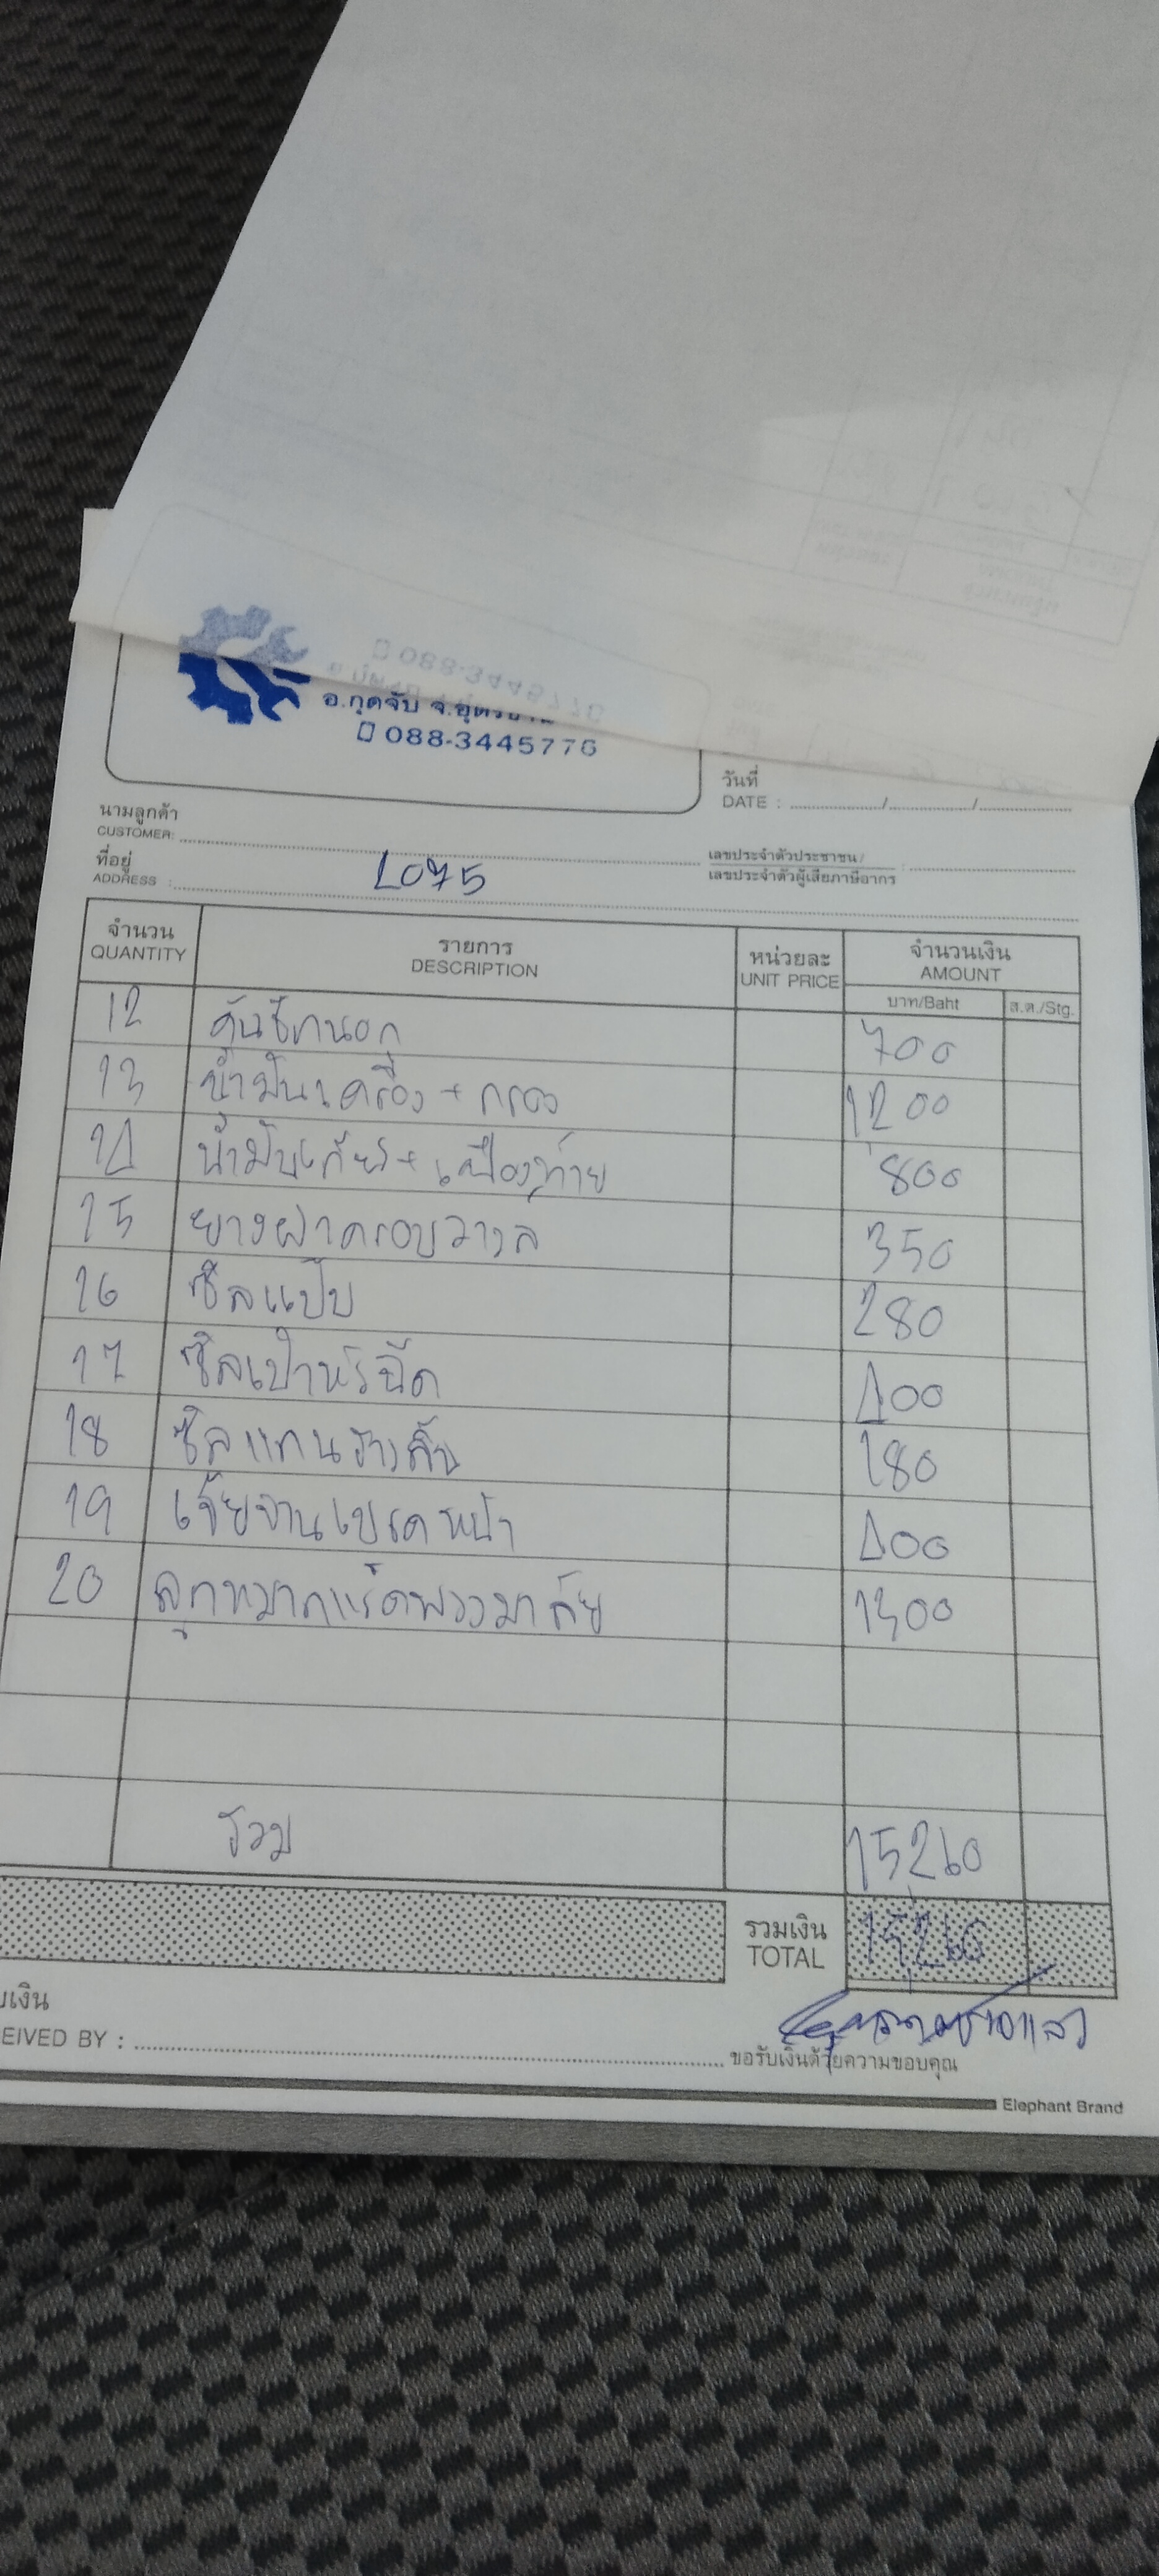 อ.กุดจับ จ.อุดรธานี
088-3445776
วันที่
DATE : / /
นามลูกค้า
CUSTOMER:
เลขประจำตัวประชาชน/
เลขประจำตัวผู้เสียภาษีอากร :
ที่อยู่
ADDRESS : L075
จำนวน รายการ หน่วยละ จำนวนเงิน
QUANTITY DESCRIPTION UNIT PRICE AMOUNT
บาท/Baht ส.ต./Stg.
12 คันชักนอก 700
13 น้ำมันเครื่อง + กรอง 1200
14 น้ำมันเกียร์ + เฟืองท้าย 800
15 ยางฝาครอบวาล์ว 350
16 ซีลแป๊บ 280
17 ซีลเบ้าหัวฉีด 400
18 ซีลแกนรางลิ้น 180
19 เจียจานเบรคหน้า 400
20 ลูกหมากแร็คพวงมาลัย 1300
รวม 15260
รวมเงิน
TOTAL 15,260
บเงิน
EIVED BY :
ขอรับเงินด้วยความขอบคุณ
Elephant Brand